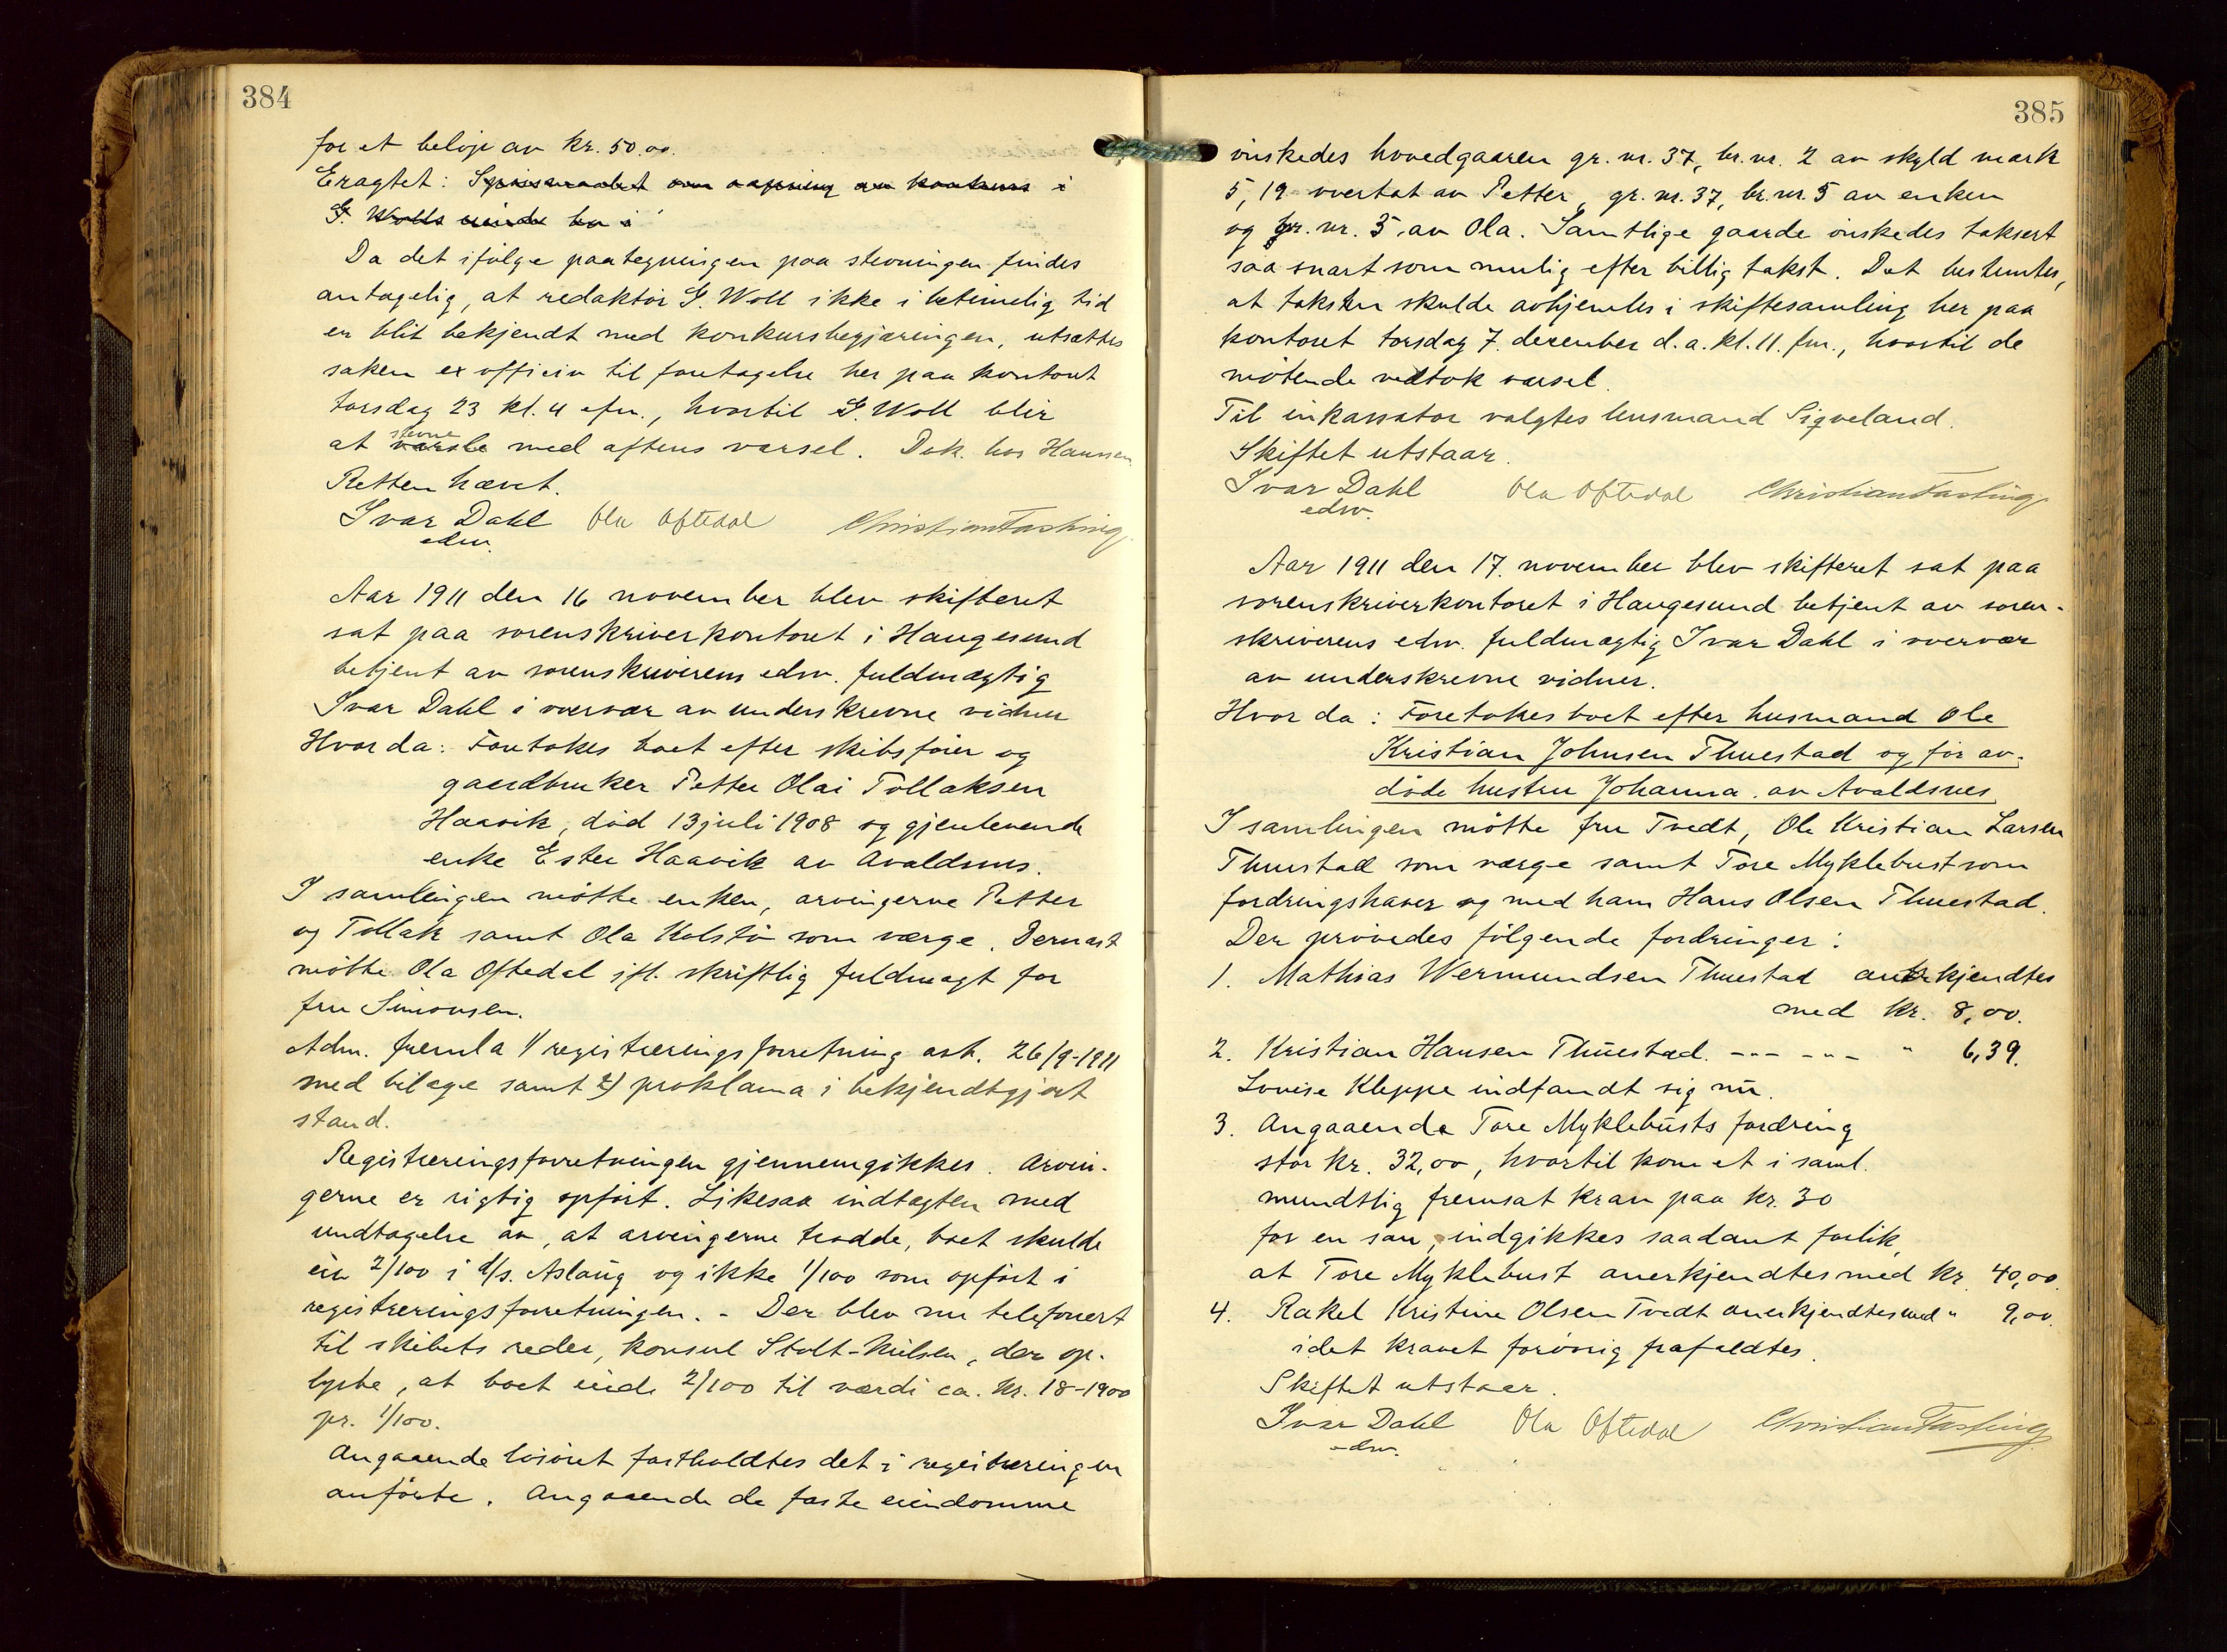 384
for et beløp av kr. 50.00.
Eragtet: Spørsmaalet om aapning av konkurs i
G. Wolls bo i
Da det ifølge paategningen paa stevningen findes
antagelig, at redaktør G. Woll ikke i betimelig tid
er blit bekjendt med konkursbegjæringen, utsættes
saken ex officio til foretagelse her paa kontoret
torsdag 23 kl. 4 efm., hvortil G. Woll blir
at varsle stevne med aftens varsel. Dok. hos Hansen
Retten hævet.
Ivar Dahl Ola Oftedal Christian Fasting
edsv.
Aar 1911 den 16 november blev skifteret
sat paa sorenskriverkontoret i Haugesund
betjent av sorenskriverens edsv. fuldmægtig
Ivar Dahl i overvær av underskrevne vidner
Hvor da: Foretokes boet efter skibsfører og
gaardbruker Petter Olai Tollaksen
Haavik, død 13 juli 1908 og gjenlevende
enke Ester Haavik av Avaldsnes.
I samlingen møtte enken, arvingerne Petter
og Tollak samt Ola Kolstø som værge. Dernæst
møtte Ola Oftedal ifl. skriftlig fuldmagt for
fru Simonsen.
Adm. fremla 1/ registreringsforretning avh. 26/9-1911
med bilage samt 2) proklama i bekjendtgjort
stand.
Registreringsforretningen gjennemgikkes. Arvin-
gerne er rigtig opført. Likesaa indtægten med
undtagelse av, at arvingerne trodde, boet skulde
eie 2/100 i d/s. Aslaug og ikke 1/100 som opført i
registreringsforretningen. - Der blev nu telefonert
til skibets reder, konsul Stolt-Nielsen, der op-
lyste, at boet eiede 2/100 til værdi ca. kr. 18-1900
pr. 1/100.
Angaaende løsøret fastholdtes det i registreringen
anførte. Angaaende de faste eiendomme
385
ønskedes hovedgaaren gr. nr. 37, br. nr. 2 av skyld mark
5,19 overtat av Petter, gr. nr. 37, br. nr. 5 av enken
og gr. nr. 5 av Ola. Samtlige gaarde ønskedes taksert
saa snart som mulig efter billig takst. Det bestemtes,
at taksten skulde avhjemles i skiftesamling her paa
kontoret torsdag 7. december d. a. kl. 11. fm., hvortil de
møtende vedtok varsel.
Til inkassator valgtes lensmand Sigveland.
Skiftet utstaar.
Ivar Dahl Ola Oftedal Christian Fasting
edsv.
Aar 1911 den 17. november blev skifteret sat paa
sorenskriverkontoret i Haugesund betjent av soren-
skriverens edsv. fuldmægtig Ivar Dahl i overvær
av underskrevne vidner.
Hvor da: Foretokes boet efter husmand Ole
Kristian Johnsen Thuestad og før av-
døde hustru Johanna av Avaldsnes
I samlingen møtte fru Tvedt, Ole Kristian Larsen
Thuestad som værge samt Tore Myklebust som
fordringshaver og med ham Hans Olsen Thuestad.
Der prøvedes følgende fordringer:
1. Mathias Wermundsen Thuestad anerkjendtes
med kr. 8,00.
2. Kristian Hansen Thuestad. --- --- " 6,39.
Lovise Kleppe indfandt sig nu.
3. Angaaende Tore Myklebusts fordring
stor kr. 32,00, hvortil kom et i saml.
mundtlig fremsat krav paa kr. 30
for en sau, indgikkes saadant forlik,
at Tore Myklebust anerkjendtes med kr. 40,00.
4. Rakel Kristine Olsen Tvedt anerkjendtes med " 9,00.
idet kravet forøvrig frafaldtes.
Skiftet utstaar.
Ivar Dahl Ola Oftedal Christian Fasting
edsv.